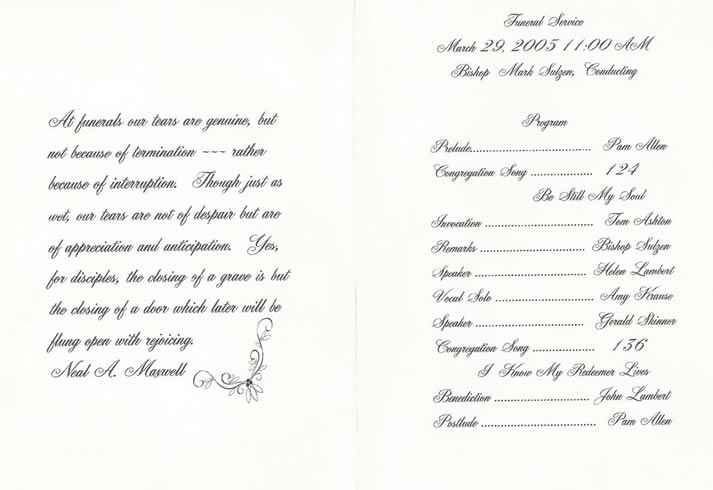 At funerals our tears are genuine, but
not because of termination ~~~ rather
because of interruption. Though just as
wet, our tears are not of despair but are
of appreciation and anticipation. Yes,
for disciples, the closing of a grave is but
the closing of a door which later will be
flung open with rejoicing.
Neal A. Maxwell
Funeral Service
March 29, 2005 11:00 AM
Bishop Mark Sulzen, Conducting
Program
Prelude.............................. Pam Allen
Congregation Song ............... 124
Be Still My Soul
Invocation ........................... Tom Ashton
Remarks ............................. Bishop Sulzen
Speaker .............................. Helen Lambert
Vocal Solo .......................... Amy Krause
Speaker .............................. Gerald Skinner
Congregation Song ............... 136
I Know My Redeemer Lives
Benediction ......................... John Lambert
Postlude ............................. Pam Allen